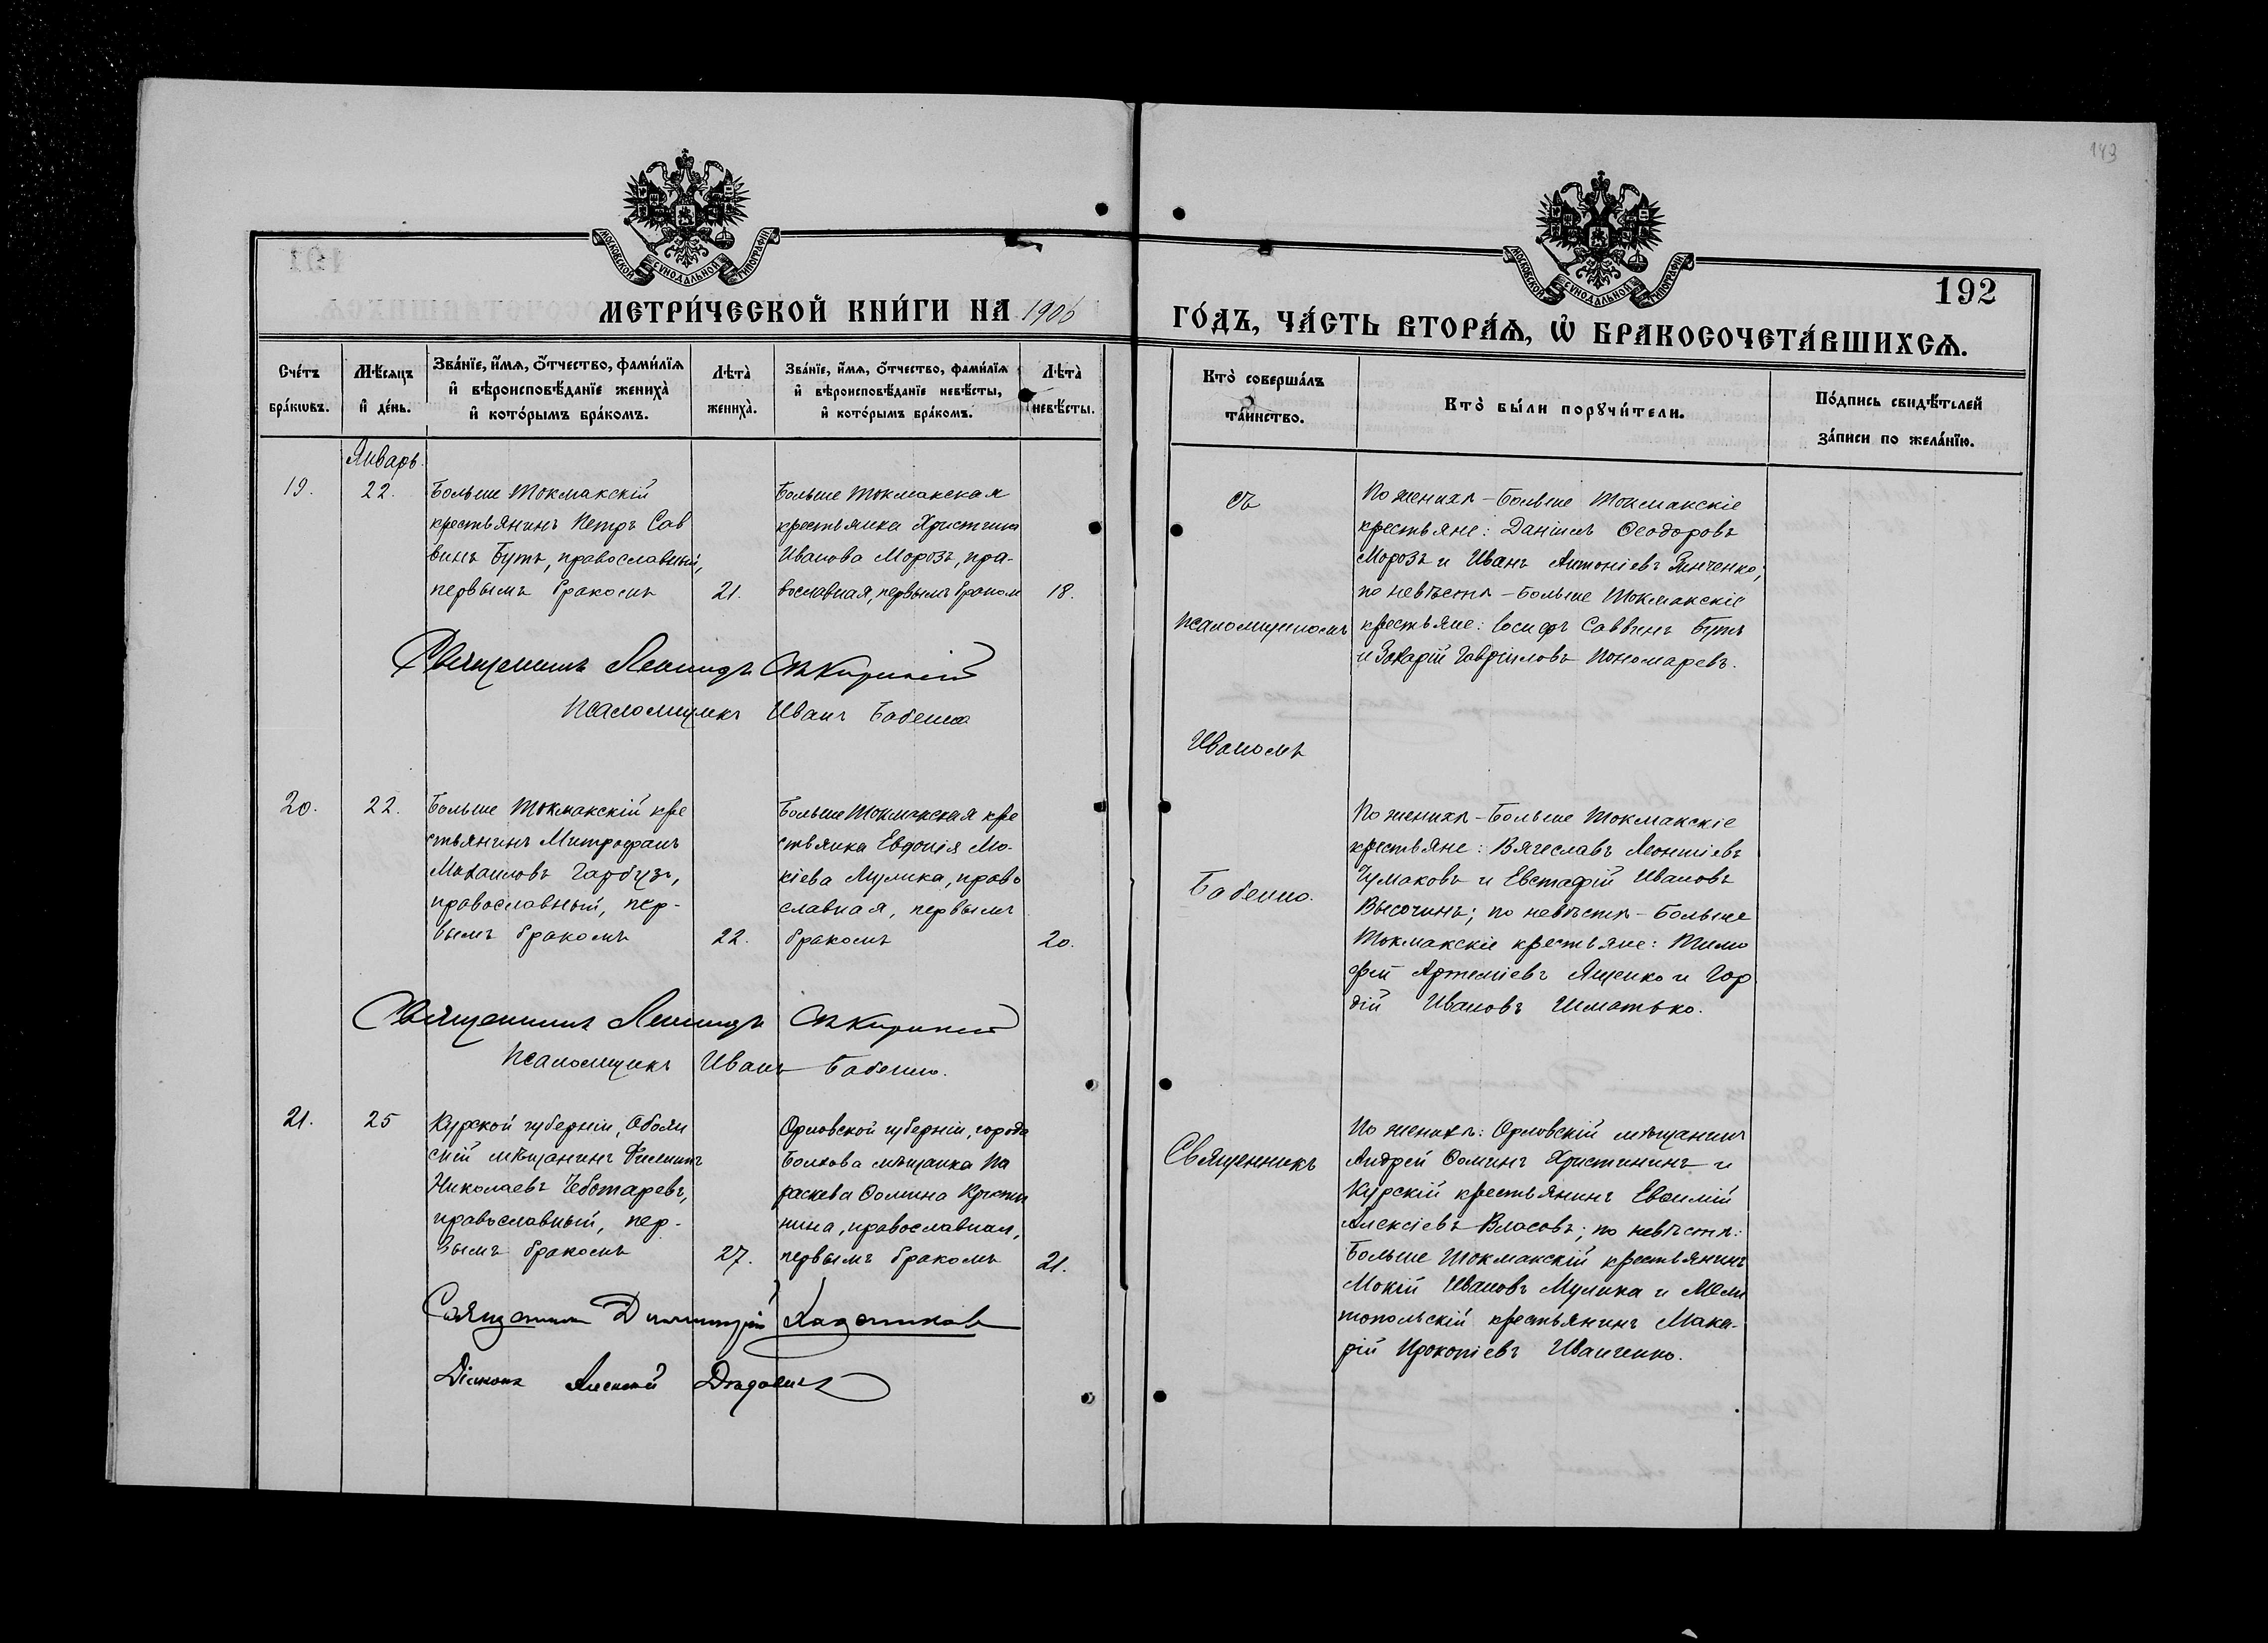 143
МОСКОВСКОЙ СѴНОДАЛЬНОЙ ТИПОГРАФІИ
МОСКОВСКОЙ СѴНОДАЛЬНОЙ ТИПОГРАФІИ
192
МЕТРИ́ЧЕСКОЙ КНИ́ГИ НА 1906
ГО́ДЪ, ЧА́СТЬ ВТОРА́Ѧ, Ѡ҆ БРАКОСОЧЕТА́ВШИХСѦ.
Сче́тъ
бра́кωвъ.
Мѣ́сяцъ
и҆ де́нь.
Зва́нїе, и҆́мѧ, ѻ҆́тчество, фами́лїѧ
и҆ вѣроисповѣ́данїе жениха̀
и҆ кото́рымъ бра́комъ.
Лѣта̀
жениха̀.
Зва́нїе, и҆́мѧ, ѻ҆́тчество, фами́лїѧ
и҆ вѣроисповѣ́данїе невѣ́сты,
и҆ кото́рымъ бра́комъ.
Лѣта̀
невѣ́сты.
Кто̀ соверша́лъ
та́инство.
Кто̀ бы́ли порꙋчи́тели.
По́дпись свидѣ́телей
за́писи по жела́нїю.
Январь.
19.
22.
Больше Токмакскій
крестьянинъ Петръ Сав
винъ Бутъ, православный,
первымъ бракомъ
21.
Больше Токмакская
крестьянка Христина
Иванова Морозъ, пра-
вославная, первымъ браком
18.
съ
псаломщикомъ
Иваномъ
Бабенко.
По женихѣ – Больше Токмакскіе
крестьяне: Даніилъ Ѳеодоровъ
Морозъ и Иванъ Антоніевъ Янченко;
по невѣстѣ – Больше Токмакскіе
крестьяне: Іосифъ Саввинъ Бутъ
и Захарій Гавріиловъ Пономаревъ.
Священникъ Леонидъ
Псаломщикъ Иванъ Бабенко
20.
22.
Больше Токмакскій кре
стьянинъ Митрофанъ
Михаиловъ Гарбузъ,
православный, пер-
вымъ бракомъ
22.
Больше Токмакская кре
стьянка Евдокія Мо-
кіева Мулика, право
славная, первымъ
бракомъ
20.
По женихѣ – Больше Токмакскіе
крестьяне: Вячеславъ Леонтіевъ
Чумаковъ и Евстафій Ивановъ
Высочинъ; по невѣстѣ – Больше
Токмакскіе крестьяне: Тимо
фей Артеміевъ Яценко и Гор
дій Ивановъ Шматько.
Священникъ Леонидъ
Псаломщикъ Иванъ Бабенко.
21.
25
Курской губерніи, Обоян
скій мѣщанинъ Филиппъ
Николаевъ Чеботаревъ,
православный, пер-
вымъ бракомъ
27.
Орловской губерніи, города
Болхова мѣщанка Па
раскева Ѳомина Христи
нина, православная,
первымъ бракомъ
21.
Священникъ
По женихѣ: Орловскій мѣщанинъ
Андрей Ѳоминъ Христининъ и
Курскій крестьянинъ Евѳимій
Алексіевъ Власовъ; по невѣстѣ:
Больше Токмакскій крестьянинъ
Мокій Ивановъ Мулика и Мели
топольскій крестьянинъ Мака-
рій Прокопіевъ Иванченко.
Священникъ Димитрій
Діаконъ Алексій